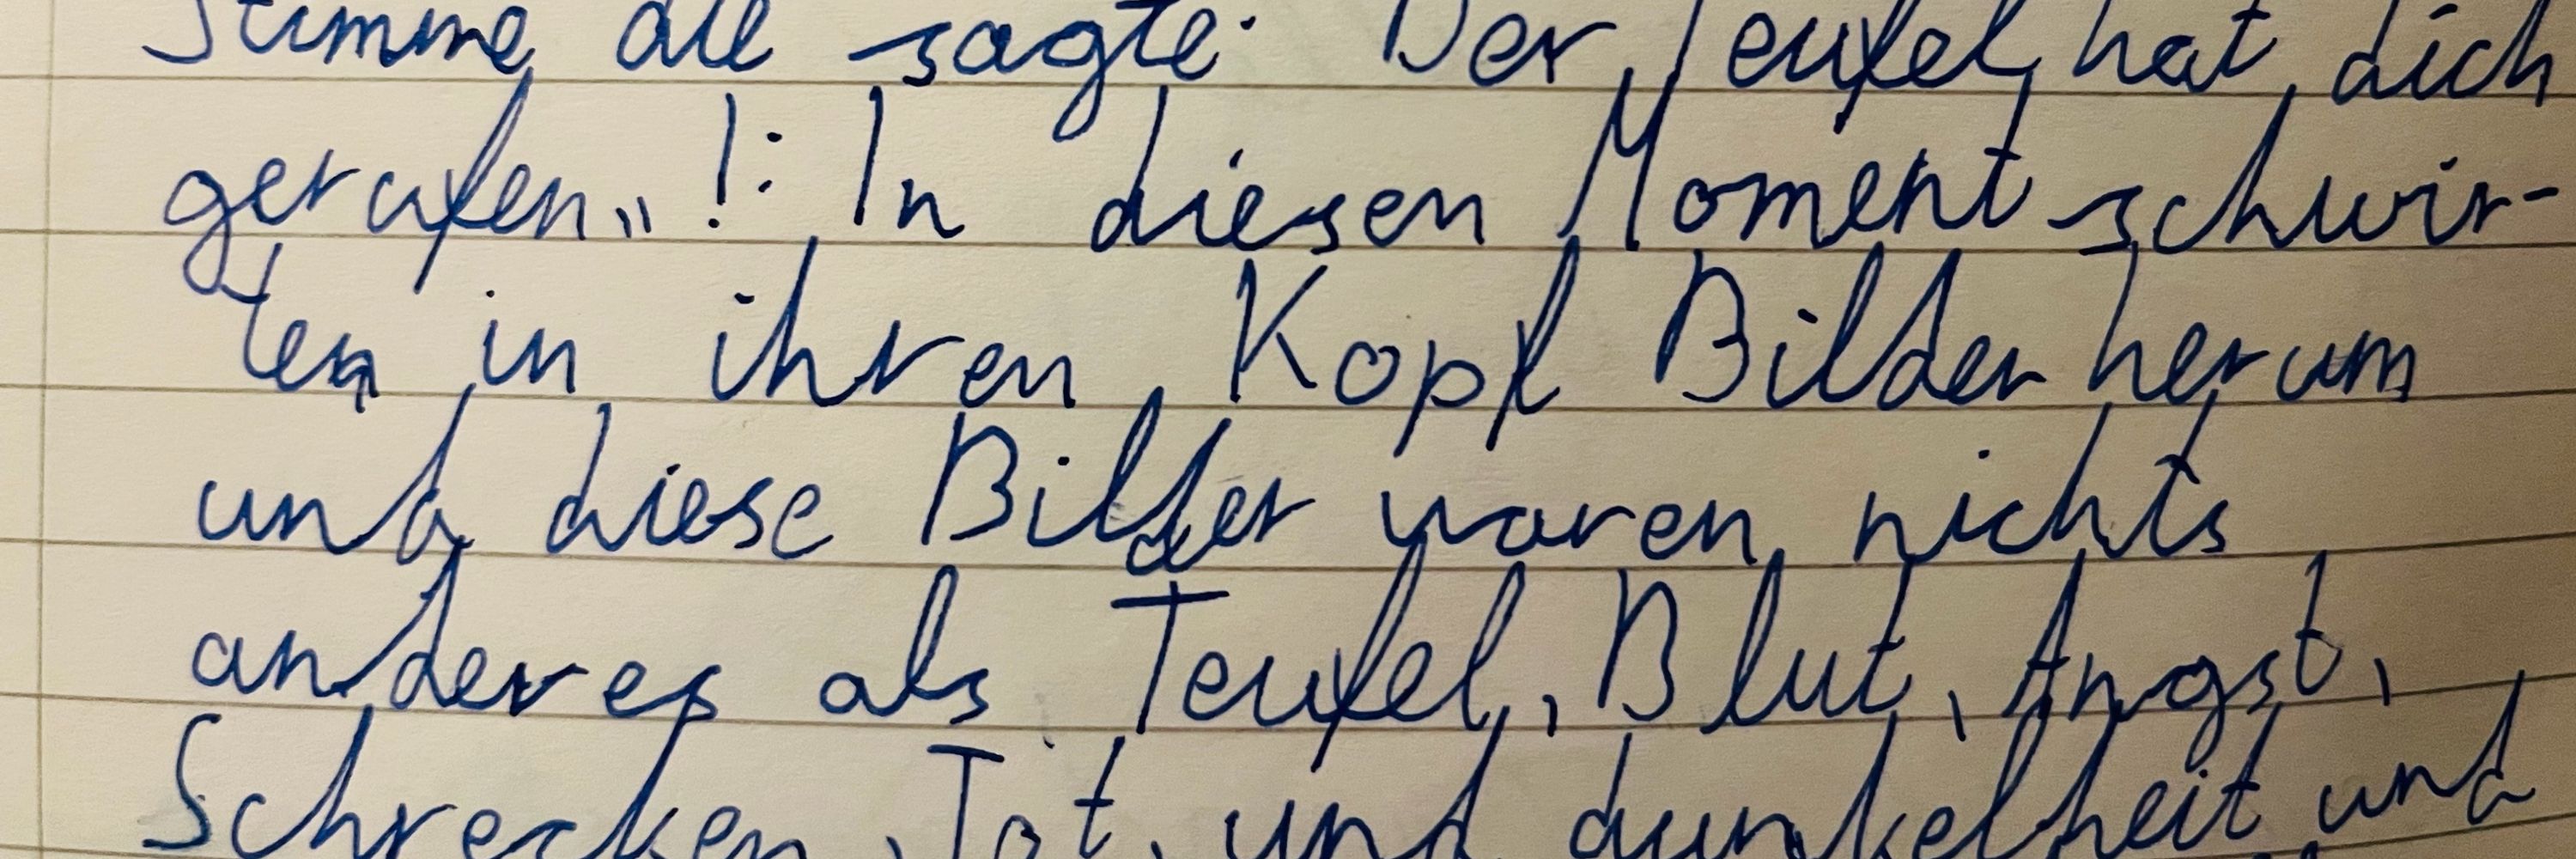 Stimme die sagte: Der Teufel hat dich
gerufen„ !: In diesen Moment schwir-
ten in ihren Kopf Bilder herum
und diese Bilder waren nichts
anderes als Teufel, Blut, Angst,
Schrecken, Tot, und dunkelheit und